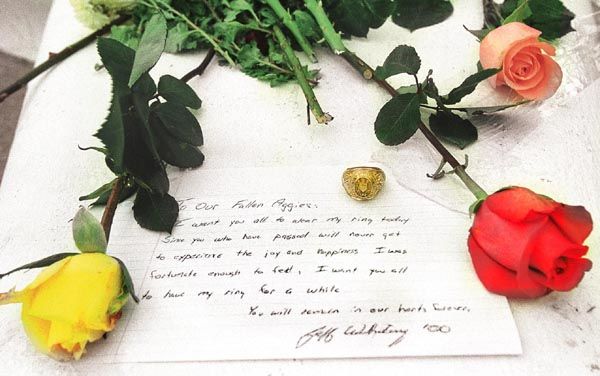 To Our Fallen Aggies,
I want you all to wear my ring today
Since you who have passed will never get
to experience the joy and happiness I was
fortunate enough to feel, I want you all
to have my ring for a while
You will remain in our hearts forever,
Jeff '00